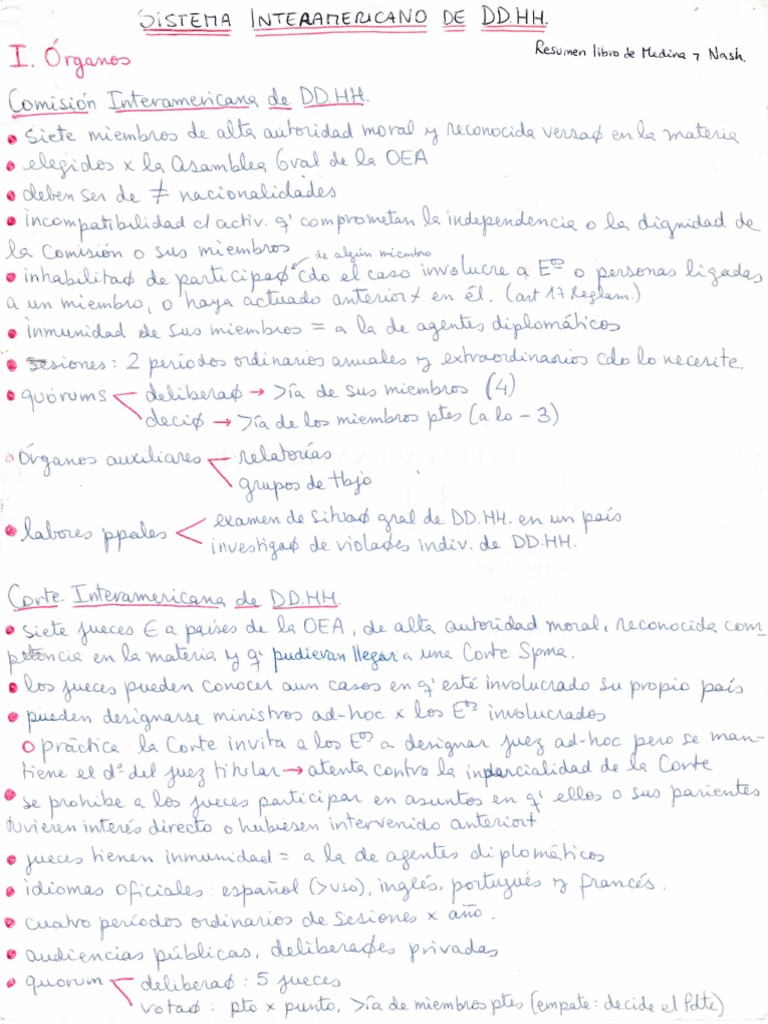 SISTEMA INTERAMERICANO DE DD.HH.
Resumen libro de Medina y Nash.
I. Órganos
Comisión Interamericana de DD.HH.
• siete miembros de alta autoridad moral y reconocida versaø en la materia
• elegidos x la Asamblea Gval de la OEA
• deben ser de ≠ nacionalidades
• incompatibilidad c/ activ. q' comprometan la independencia o la dignidad de
la Comisión o sus miembros
de algún miembro
• inhabilitaø de participaø cdo el caso involucre a Eº o personas ligadas
a un miembro, o haya actuado anterior+ en él. (art 17 Reglam.)
• inmunidad de sus miembros = a la de agentes diplomáticos
• sesiones: 2 períodos ordinarios anuales y extraordinarios cdo lo necesite.
• quórums deliberaø → >ía de sus miembros (4)
deciø → >ía de los miembros ptes (a lo - 3)
• Órganos auxiliares relatorías
grupos de tbjo
• labores ppales examen de sitvaø gral de DD.HH. en un país
investigaø de violaøes indiv. de DD.HH.
Corte Interamericana de DD.HH.
• siete jueces ∈ a países de la OEA, de alta autoridad moral, reconocida com_
petencia en la materia y q' pudieran llegar a una Corte Spma.
• los jueces pueden conocer aun casos en q' esté involucrado su propio país
• pueden designarse ministros ad-hoc x los Eºs involucrados
o práctica: la Corte invita a los Eºs a designar juez ad-hoc pero se man-
tiene el dº del juez titular → atenta contra la imparcialidad de la Corte
• se prohibe a los jueces participar en asuntos en q' ellos o sus parientes
tuvieren interés directo o hubiesen intervenido anterior+
• jueces tienen inmunidad = a la de agentes diplomáticos
• idiomas oficiales: español (>uso), inglés, portugués y francés.
• cuatro períodos ordinarios de sesiones x año.
• audiencias públicas, deliberaøes privadas
• quorum deliberaø: 5 jueces
votaø: pto x punto, >ía de miembros ptes (empate: decide el Pdte)